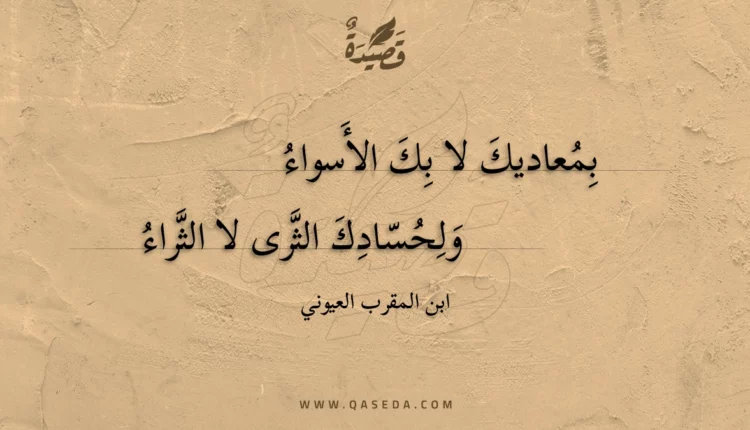 قَصِيْدَةٌ
بِمُعاديكَ لا بِكَ الأَسواءُ
وَلِحُسّادِكَ الثَّرى لا الثَّراءُ
ابن المقرب العيوني
WWW.QASEDA.COM